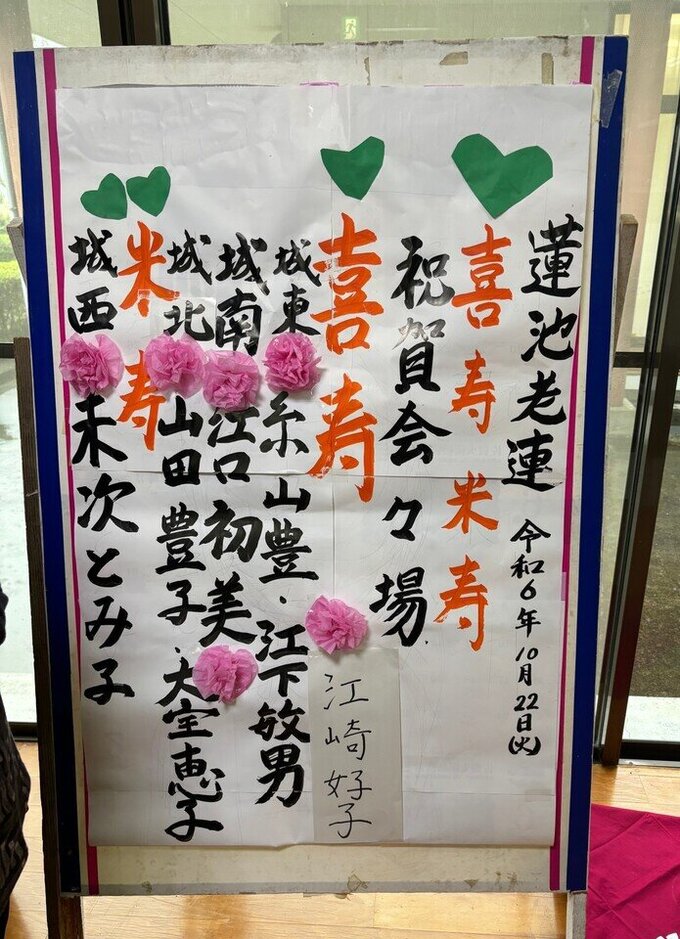 蓮池老連 令和6年10月22日(火)
喜寿 米寿
祝賀会々場
喜寿
江崎好子
城東 糸山豊・江下敏男
城南 江口初美
城北 山田豊子・大宝恵子
米寿
城西 末次とみ子